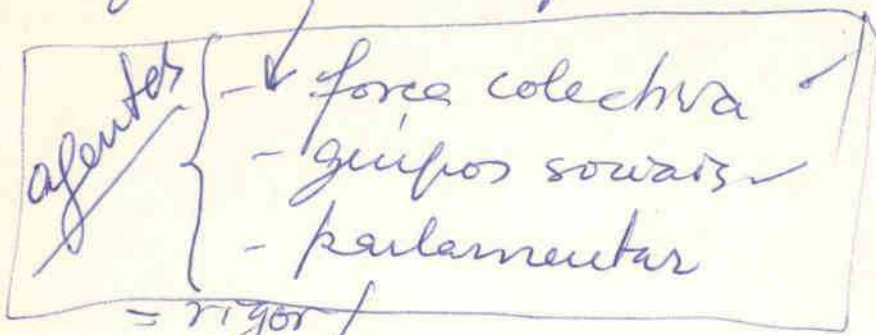 agentes
- força colectiva
- grupos sociais
- parlamentar
= rigor